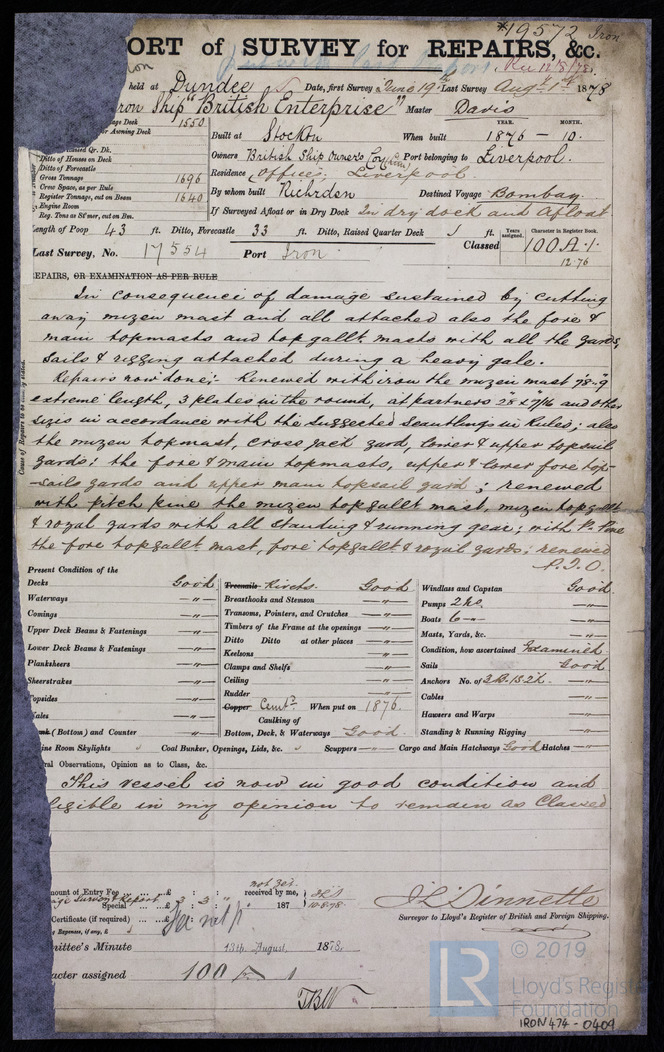 *19572 Iron
ORT of SURVEY for REPAIRS, &c.
Rec 12/8/78.
held at Dundee Date, first Survey June 19th Last Survey Augt 1st 1878
Iron Ship "British Enterprise" Master Davis
age Deck 1550
or Awning Deck
Ditto of Houses on Deck
Ditto of Forecastle
Gross Tonnage 1696
Crew Space, as per Rule
Register Tonnage, cut on Beam 1640
Engine Room
Reg. Tons as St'mer, cut on Bm.
YEAR. MONTH.
Built at Stockton When built 1876 - 10.
Owners British Ship Owners Coy Port belonging to Liverpool.
Residence Office: Liverpool
By whom built Richrdsn Destined Voyage Bombay
If Surveyed Afloat or in Dry Dock In dry dock and Afloat
Length of Poop 43 ft. Ditto, Forecastle 33 ft. Ditto, Raised Quarter Deck ft.
Years assigned. Character in Register Book.
Last Survey, No. 17554 Port Iron Classed 100 A.1.
12.76
EPAIRS, OR EXAMINATION AS PER RULE
Cause of Repairs to be here stated.
In consequence of damage sustained by cutting
away mizen mast and all attached also the fore &
main topmasts and top gallt. masts with all the yards,
sails & rigging attached during a heavy gale.
Repairs now done;- Renewed with iron the mizen mast 78-9
extreme length, 3 plates in the round, at partners 28 x 7/16 and other
sizes in accordance with the suggested Scantlings in Rules; also
the mizen topmast, cross jack yard, lower & upper topsail
yards; the fore & main topmasts, upper & lower fore top-
sails yards and upper main topsail yard; renewed
with pitch pine the mizen topgallt mast, mizen topgallt
& royal yards with all standing & running gear; with P. Pine
the fore topgallt. mast, fore topgallt & royal yards; renewed
P.T.O.
Present Condition of the
Decks Good
Waterways -"-
Comings -"-
Upper Deck Beams & Fastenings -"-
Lower Deck Beams & Fastenings -"-
Planksheers -"-
Sheerstrakes -"-
Topsides -"-
Wales -"-
ank (Bottom) and Counter -"-
Treenails Rivets Good
Breasthooks and Stemson -"-
Transoms, Pointers, and Crutches -"-
Timbers of the Frame at the openings -"-
Ditto Ditto at other places -"-
Keelsons -"-
Clamps and Shelfs -"-
Ceiling -"-
Rudder -"-
Copper Cemt. When put on 1876.
Caulking of
Bottom, Deck, & Waterways Good.
Windlass and Capstan Good.
Pumps 2 no. -"-
Boats 6 -"- -"-
Masts, Yards, &c. -"-
Condition, how ascertained Examined
Sails Good
Anchors No. of 3B. 1S. 2k. -"-
Cables -"-
Hawsers and Warps -"-
Standing & Running Rigging -"-
ine Room Skylights " Coal Bunker, Openings, Lids, &c. " Scuppers -"- Cargo and Main Hatchways Good Hatches -"-
ral Observations, Opinion as to Class, &c.
This vessel is now in good condition and
ligible in my opinion to remain as Classed
mount of Entry Fee £ : : received by me,
Special £ 3 : 3 : " 187
10.8.78.
Certificate (if required) £
g Expenses, if any, £
Surveyor to Lloyd's Register of British and Foreign Shipping.
mittee's Minute 13th August, 1878.
acter assigned 100 A 1
TBW
LR
© 2019
Lloyd's Regis
Foundation
IRON 474-0409